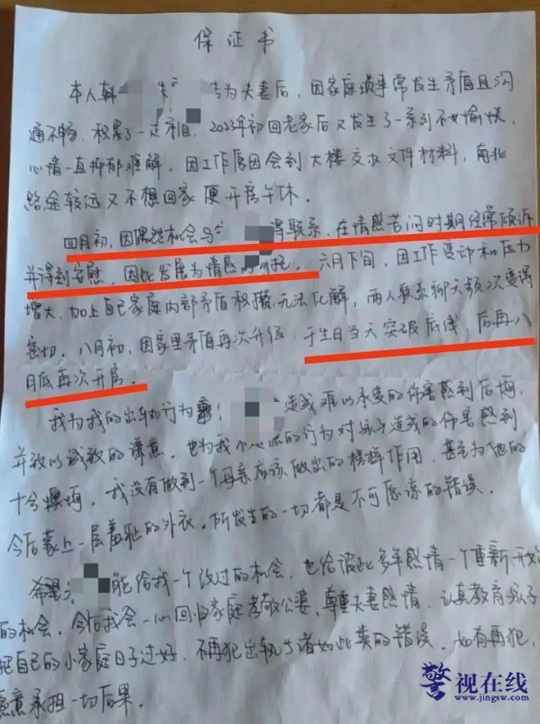 保证书
本人韩 为夫妻后，因家庭琐事常发生矛盾且沟
通不畅，积累了一定矛盾，2023年初回老家后又发生了一系列不愉快，
心情一直抑郁难解，因工作原因会到大楼交收文件材料，南北
路途较远又不想回家便开房午休。
四月初，因偶然机会与 得联系，在情感苦闷时期经常倾诉
并得到安慰，因此发展为情感 六月下旬，因工作变动和压力
增大，加上自己家庭内部矛盾积攒无法化解，两人联系聊天频次变得
密切。八月初，因家里矛盾再次升级，于生日当天突破底线，后再八
月底再次开房。
我为我的出轨行为 造成难以承受的伤害感到后悔，
并致以诚挚的歉意，也为我 的行为对孩子造成的伤害感到
十分 ，我没有做到一个母亲应该做出的榜样作用，甚至为他的
今后蒙上一层羞耻的外衣。所发生的一切都是不可原谅的错误。
希望 能给我一个改过的机会，也给彼此多年感情一个重新开始
的机会。今后我会一心回归家庭孝敬公婆， 重夫妻感情，认真教育孩子
把自己的小家庭日子过好，不再犯出轨等诸如此类的错误，如有再犯，
愿意承担一切后果。
警视在线
www.jingsw.com